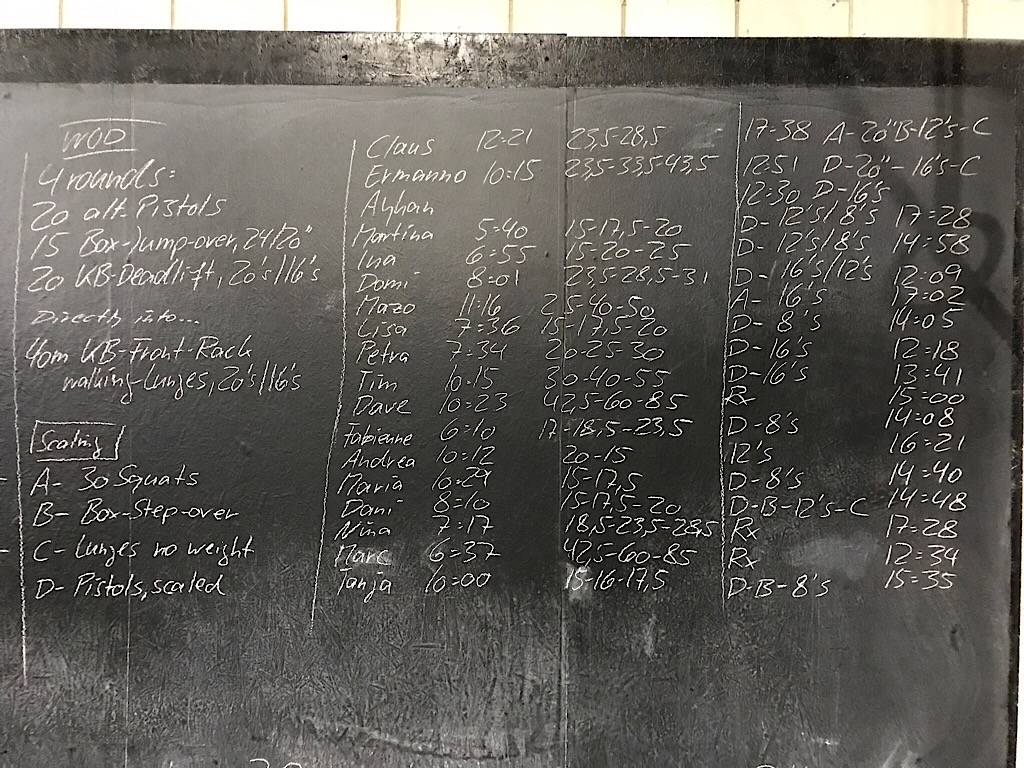 WOD
4 rounds:
20 alt. Pistols
15 Box-Jump-over, 24/20"
20 KB-Deadlift, 20's/16's
Directly into...
40m KB-Front-Rack
walking-Lunges, 20's/16's
Scaling
A- 30 Squats
B- Box-Step-over
C- Lunges no weight
D- Pistols, scaled
Claus 12:21 23,5-28,5 17-38 A-20"B-12's-C
Ermanno 10:15 23,5-33,5-43,5 12:51 D-20"-16's-C
Ayhan 12:30 D-16's
Martina 5:40 15-17,5-20 D-12's/8's 17:28
Ina 6:55 15-20-25 D-12's/8's 14:58
Domi 8:01 23,5-28,5-31 D-16's/12's 12:09
Mazo 11:16 25-40-50 A-16's 17:02
Lisa 7:36 15-17,5-20 D-8's 14:05
Petra 7:34 20-25-30 D-16's 12:18
Tim 10:15 30-40-55 D-16's 13:41
Dave 10:23 42,5-60-85 Rx 15:00
Fabienne 6:10 17-18,5-23,5 D-8's 14:08
Andrea 10:12 20-15 12's 16:21
Maria 10:29 15-17,5 D-8's 14:40
Dani 8:10 15-17,5-20 D-B-12's-C 14:48
Nina 7:17 18,5-23,5-28,5 Rx 17:28
Marc 6:37 42,5-60-85 Rx 12:34
Tanja 10:00 15-16-17,5 D-B-8's 15:35